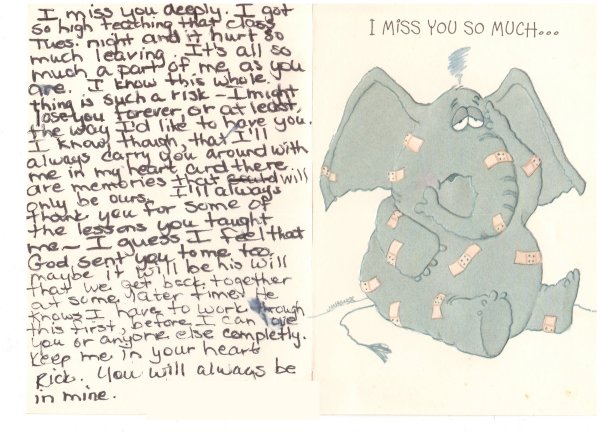 I miss you deeply. I got
so high teaching that class
Tues. night and it hurt so
much leaving. It's all so
much a part of me as you
are. I know this whole
thing is such a risk - I might
lose you forever, or at least,
the way I'd like to have you.
I know, though, that I'll
always carry you around with
me in my heart and there
are memories that could will
only be ours. I'll always
thank you for some of
the lessons you taught
me - I guess I feel that
God sent you to me too.
maybe it will be his will
that we get back together
at some later time. He
knows I have to work through
this first, before I can love
you or anyone else completly.
Keep me in your heart
Rick. You will always be
in mine.
I MISS YOU SO MUCH...